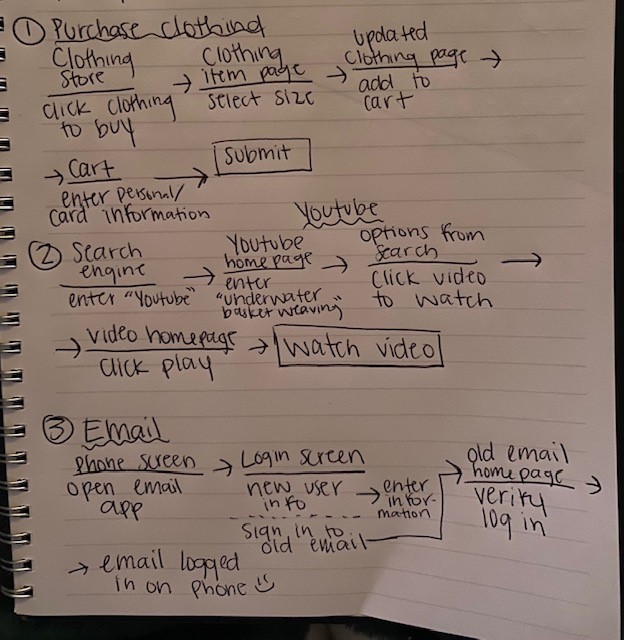 ① Purchase clothing
Clothing Store
click clothing to buy
→ Clothing item page
select size
→ updated clothing page →
add to cart
→ Cart
enter personal/ card information
→ Submit
Youtube
② Search engine
enter "Youtube"
→ Youtube home page
enter "underwater basket weaving"
→ options from search
click video to watch →
→ video homepage
click play
→ Watch video
③ Email
phone screen
open email app
→ Login screen
new user info
→ enter infor- mation
sign in to old email
→ old email home page
verify log in →
→ email logged in on phone